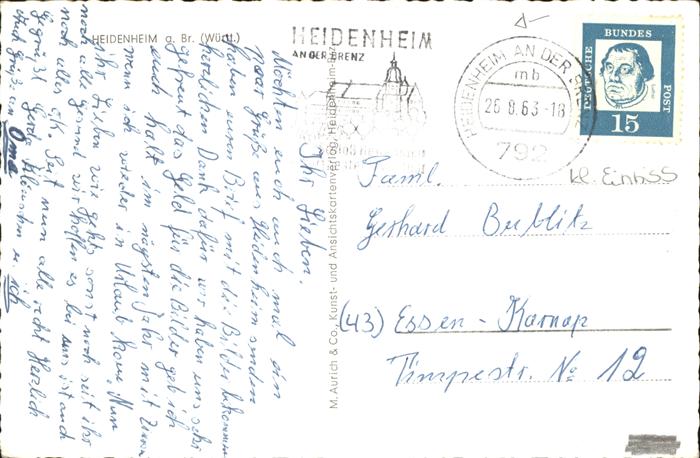 HEIDENHEIM a. Br. (Württ.)
HEIDENHEIM
AN DER BRENZ
HEIDENHEIM AN DER BRENZ
mb
26.8.63-18
792
DEUTSCHE BUNDES POST
15
kl. Einriss
Ihr Lieben.
Möchten euch auch mal ein
paar Grüße aus Heidenheim senden
haben euren Brief mit die Bilder bekommen
herzlichen Dank dafür wir haben uns sehr
gefreut das Geld für die Bilder geb ich
euch halt im nächsten Jahr mit
wenn ich wieder in Urlaub komme. Nun
ihr Lieben wie gehts sonst noch seit ihr
noch alle Gesund wir hoffen es bei uns ist auch
noch alles ok. Seit nun alle recht Herzlich
gegrüßt Gerda Kläuschen u. ich
Auch Grüße Oma
M. Aurich & Co., Kunst- und Ansichtskartenverlag, Heidenheim-Brz.
Faml.
Gerhard Bublitz
(43) Essen - Karnap
Timpestr. No 12